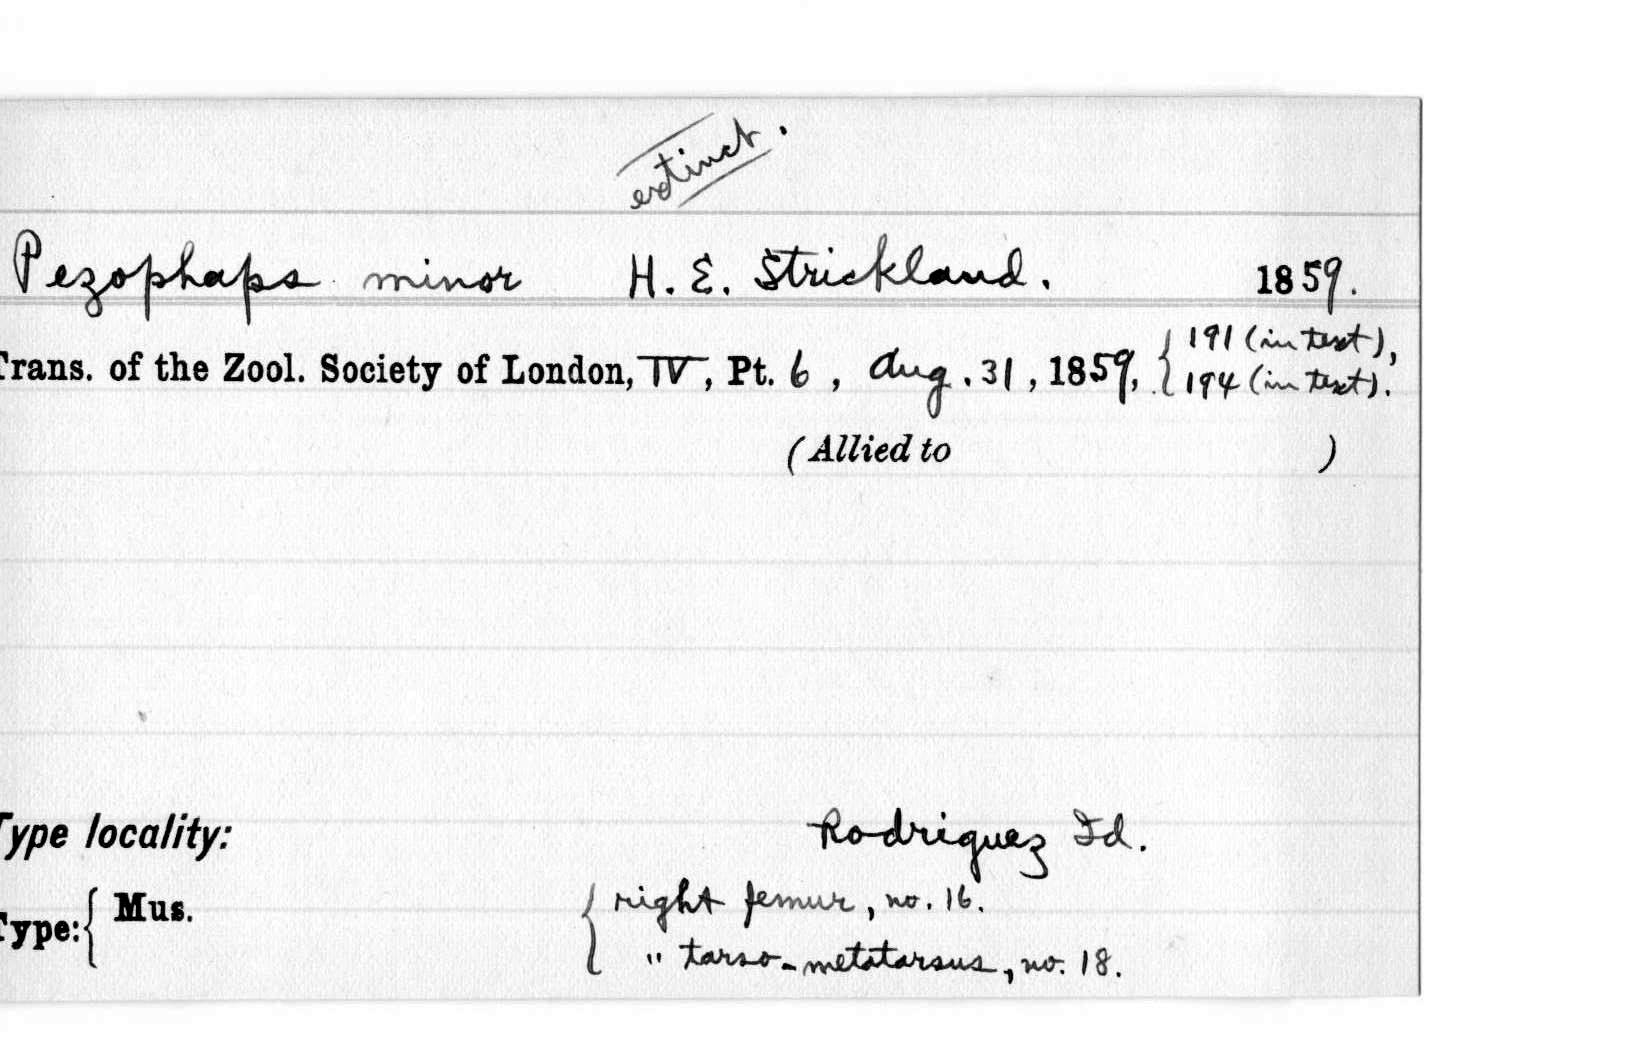 extinct.
Pezophaps minor H. E. Strickland. 1859.
Trans. of the Zool. Society of London, IV, Pt. 6, Aug. 31, 1859, { 191 (in text),
194 (in text).
(Allied to )
Type locality: Rodriguez Id.
Type: { Mus. { right femur, no. 16.
" tarso-metatarsus, no. 18.